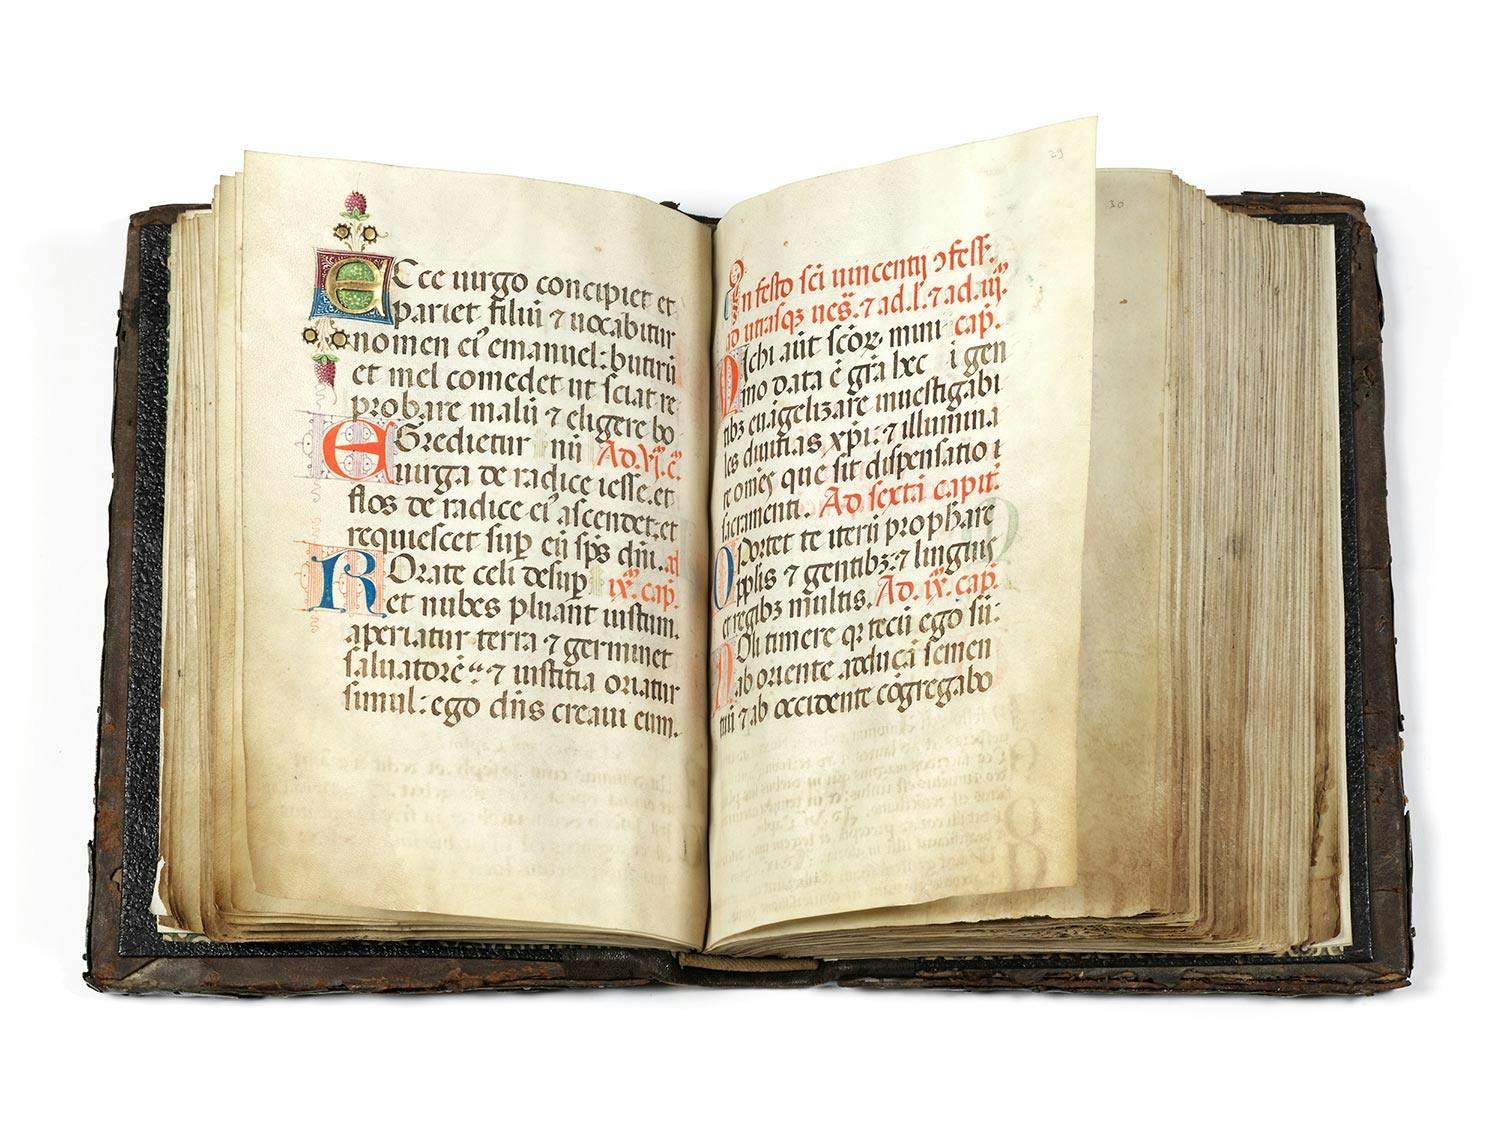 Ecce uirgo concipiet et
pariet filiū ⁊ uocabitur
nomen eiꝰ emanuel: butirū
et mel comedet ut sciat re
probare malū ⁊ eligere bo
Egredietur nū Ad.vj.c̄.
uirga de radice iesse. et
flos de radice eiꝰ ascendet: et
requiescet sup eū sp̄s dn̄i. ad
Rorate celi desup ix.ᵐ cap̄.
et nubes pluant iustum.
aperiatur terra ⁊ germinet
saluatorē: ⁊ iustitia oriatur
simul: ego dn̄s creaui eum.
29
In festo sc̄i uincentij ↄfess.
ad utrasqꝫ ues̄. ⁊ ad .l. ⁊ ad .iij.ᵐ
Michi aūt sc̄oꝝ mini cap̄.
mo data ē gr̄a hec i gen
tibꝫ euāgelizare inuestigabi
les diuitias xp̄i: ⁊ illumina
re om̄es que sit dispensatio
sacramenti. Ad sextā capit̄.
Oportet te iterū prophare
pplis ⁊ gentibꝫ: ⁊ linguis
et regibꝫ multis. Ad .ix.ᵐ cap̄.
Noli timere qꝛ tecū ego sū:
ab oriente adducā semen
tuū ⁊ ab occidente cōgregabo
30